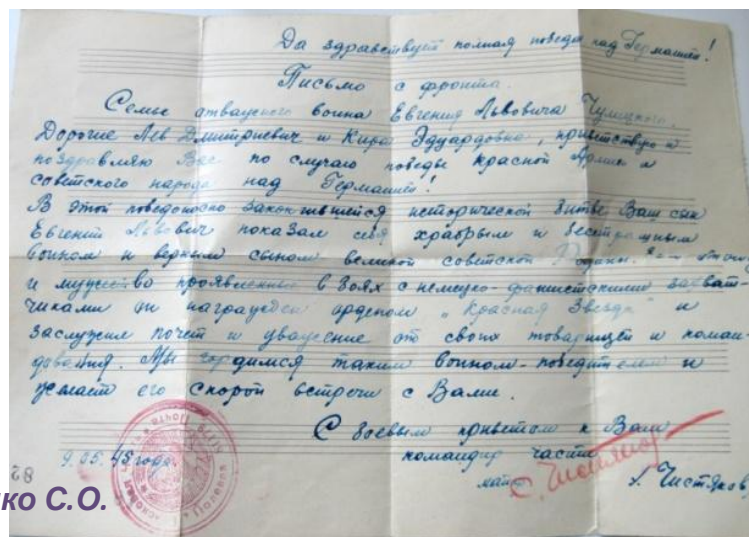 Да здравствует полная победа над Германией!
Письмо с фронта.
Семье отважного воина Евгения Львовича Чулицкого.
Дорогие Лев Дмитриевич и Кира Эдуардовна, приветствую и
поздравляю Вас по случаю победы Красной Армии и
советского народа над Германией!
В этой победоносно закончившейся исторической битве Ваш сын
Евгений Львович показал себя храбрым и бесстрашным
воином и верным сыном великой советской Родины. За
и мужество проявленные в боях с немецко-фашистскими захват-
чиками он награжден орденом "Красная Звезда" и
заслужил почет и уважение от своих товарищей и коман-
дования. Мы гордимся таким воином-победителем и
желаем его скорой встречи с Вами.
С боевым приветом к Вам
9.05.45 года.
командир части
майор
Чистяков
82
ко С.О.